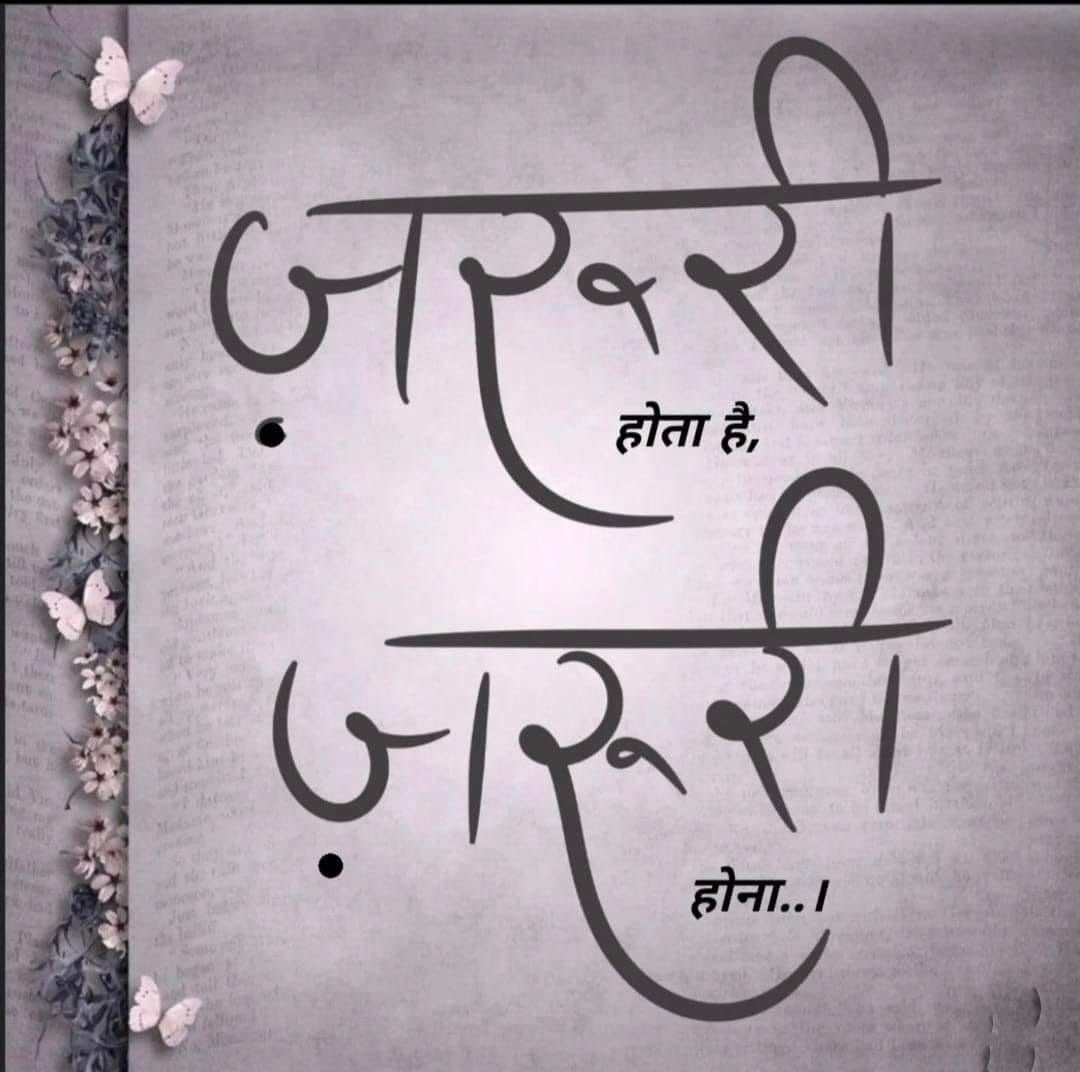 ज़रूरी
होता है,
ज़रूरी
होना..।